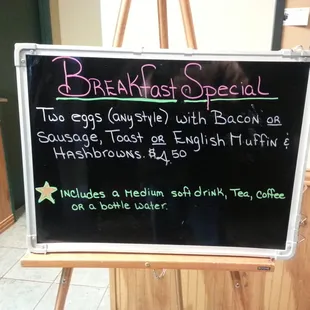 Breakfast Special
Two eggs (any style) with Bacon or
Sausage, Toast or English Muffin &
Hashbrowns. $4.50
Includes a medium soft drink, Tea, Coffee
or a bottle water.